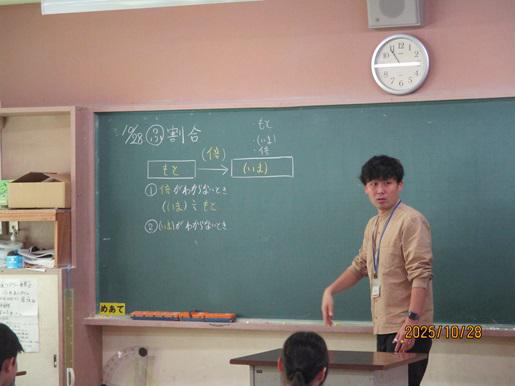 10/28 ㋫ 割合
もと
(いま)
・倍
もと
(倍)
(いま)
① 倍がわからないとき
(いま) ÷ もと
② (いま)がわからないとき
めあて
2025/10/28